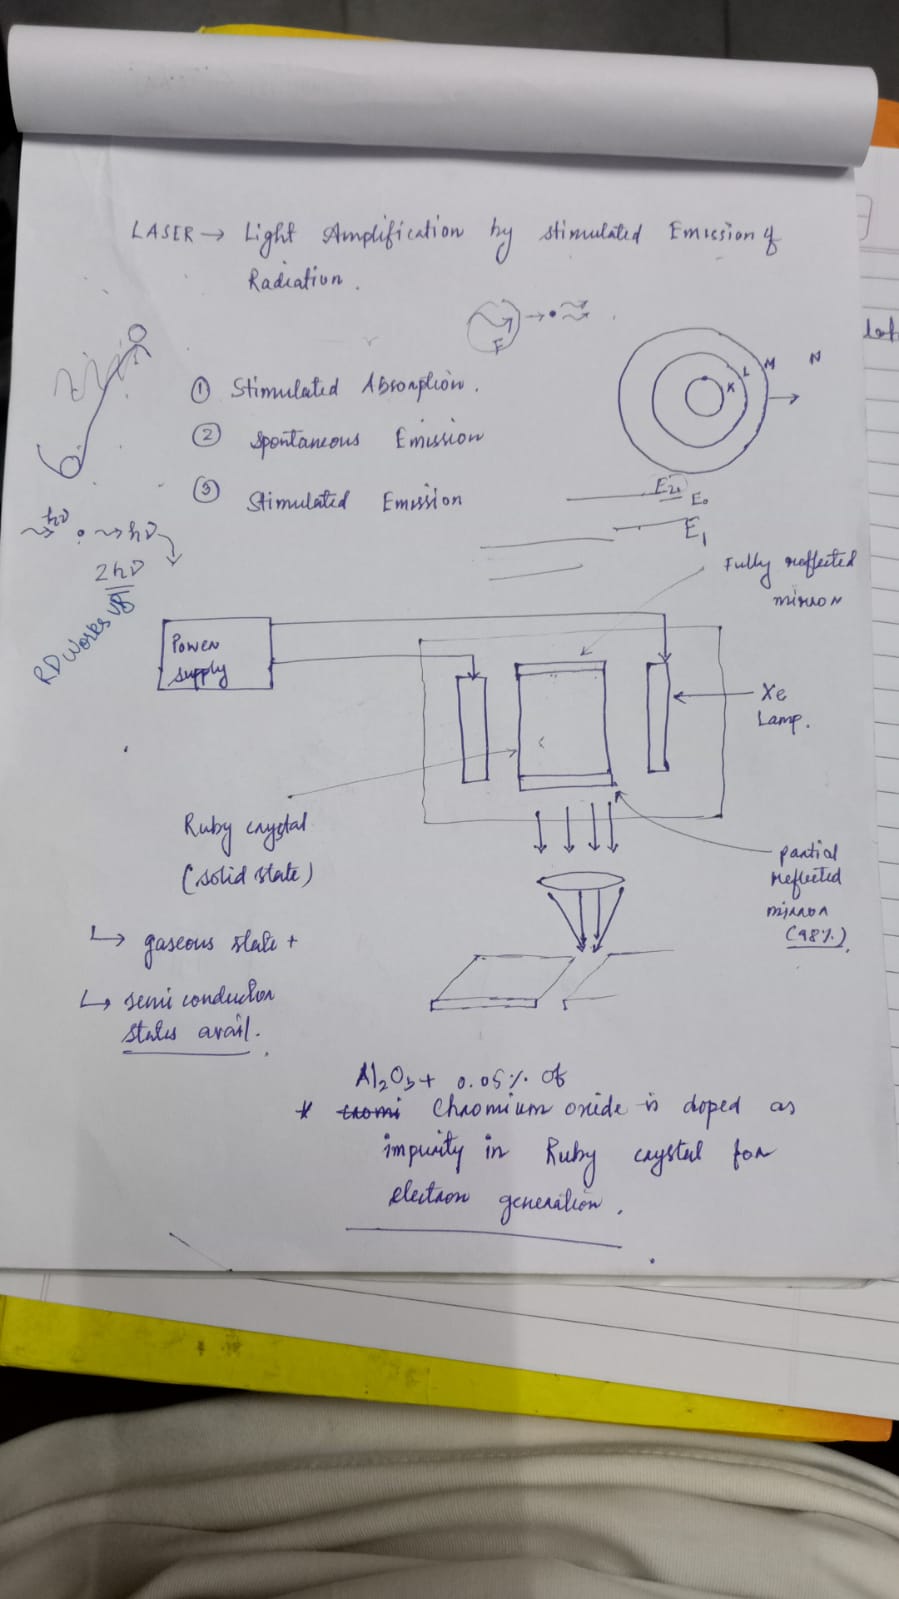 LASER → Light Amplification by stimulated Emission of
Radiation.
F
① Stimulated Absorption.
② Spontaneous Emission
③ Stimulated Emission
K L M N
E2 E0
E1
hν
hν
2hν
RDWorks V8
Fully reflected
mirror
Power
supply
Xe
Lamp.
Ruby crystal
(solid state)
partial
reflected
mirror
(98%)
↳ gaseous state +
↳ semi conductor
states avail.
Al2O3 + 0.05% of
* Chromium oxide is doped as
impurity in Ruby crystal for
electron generation.